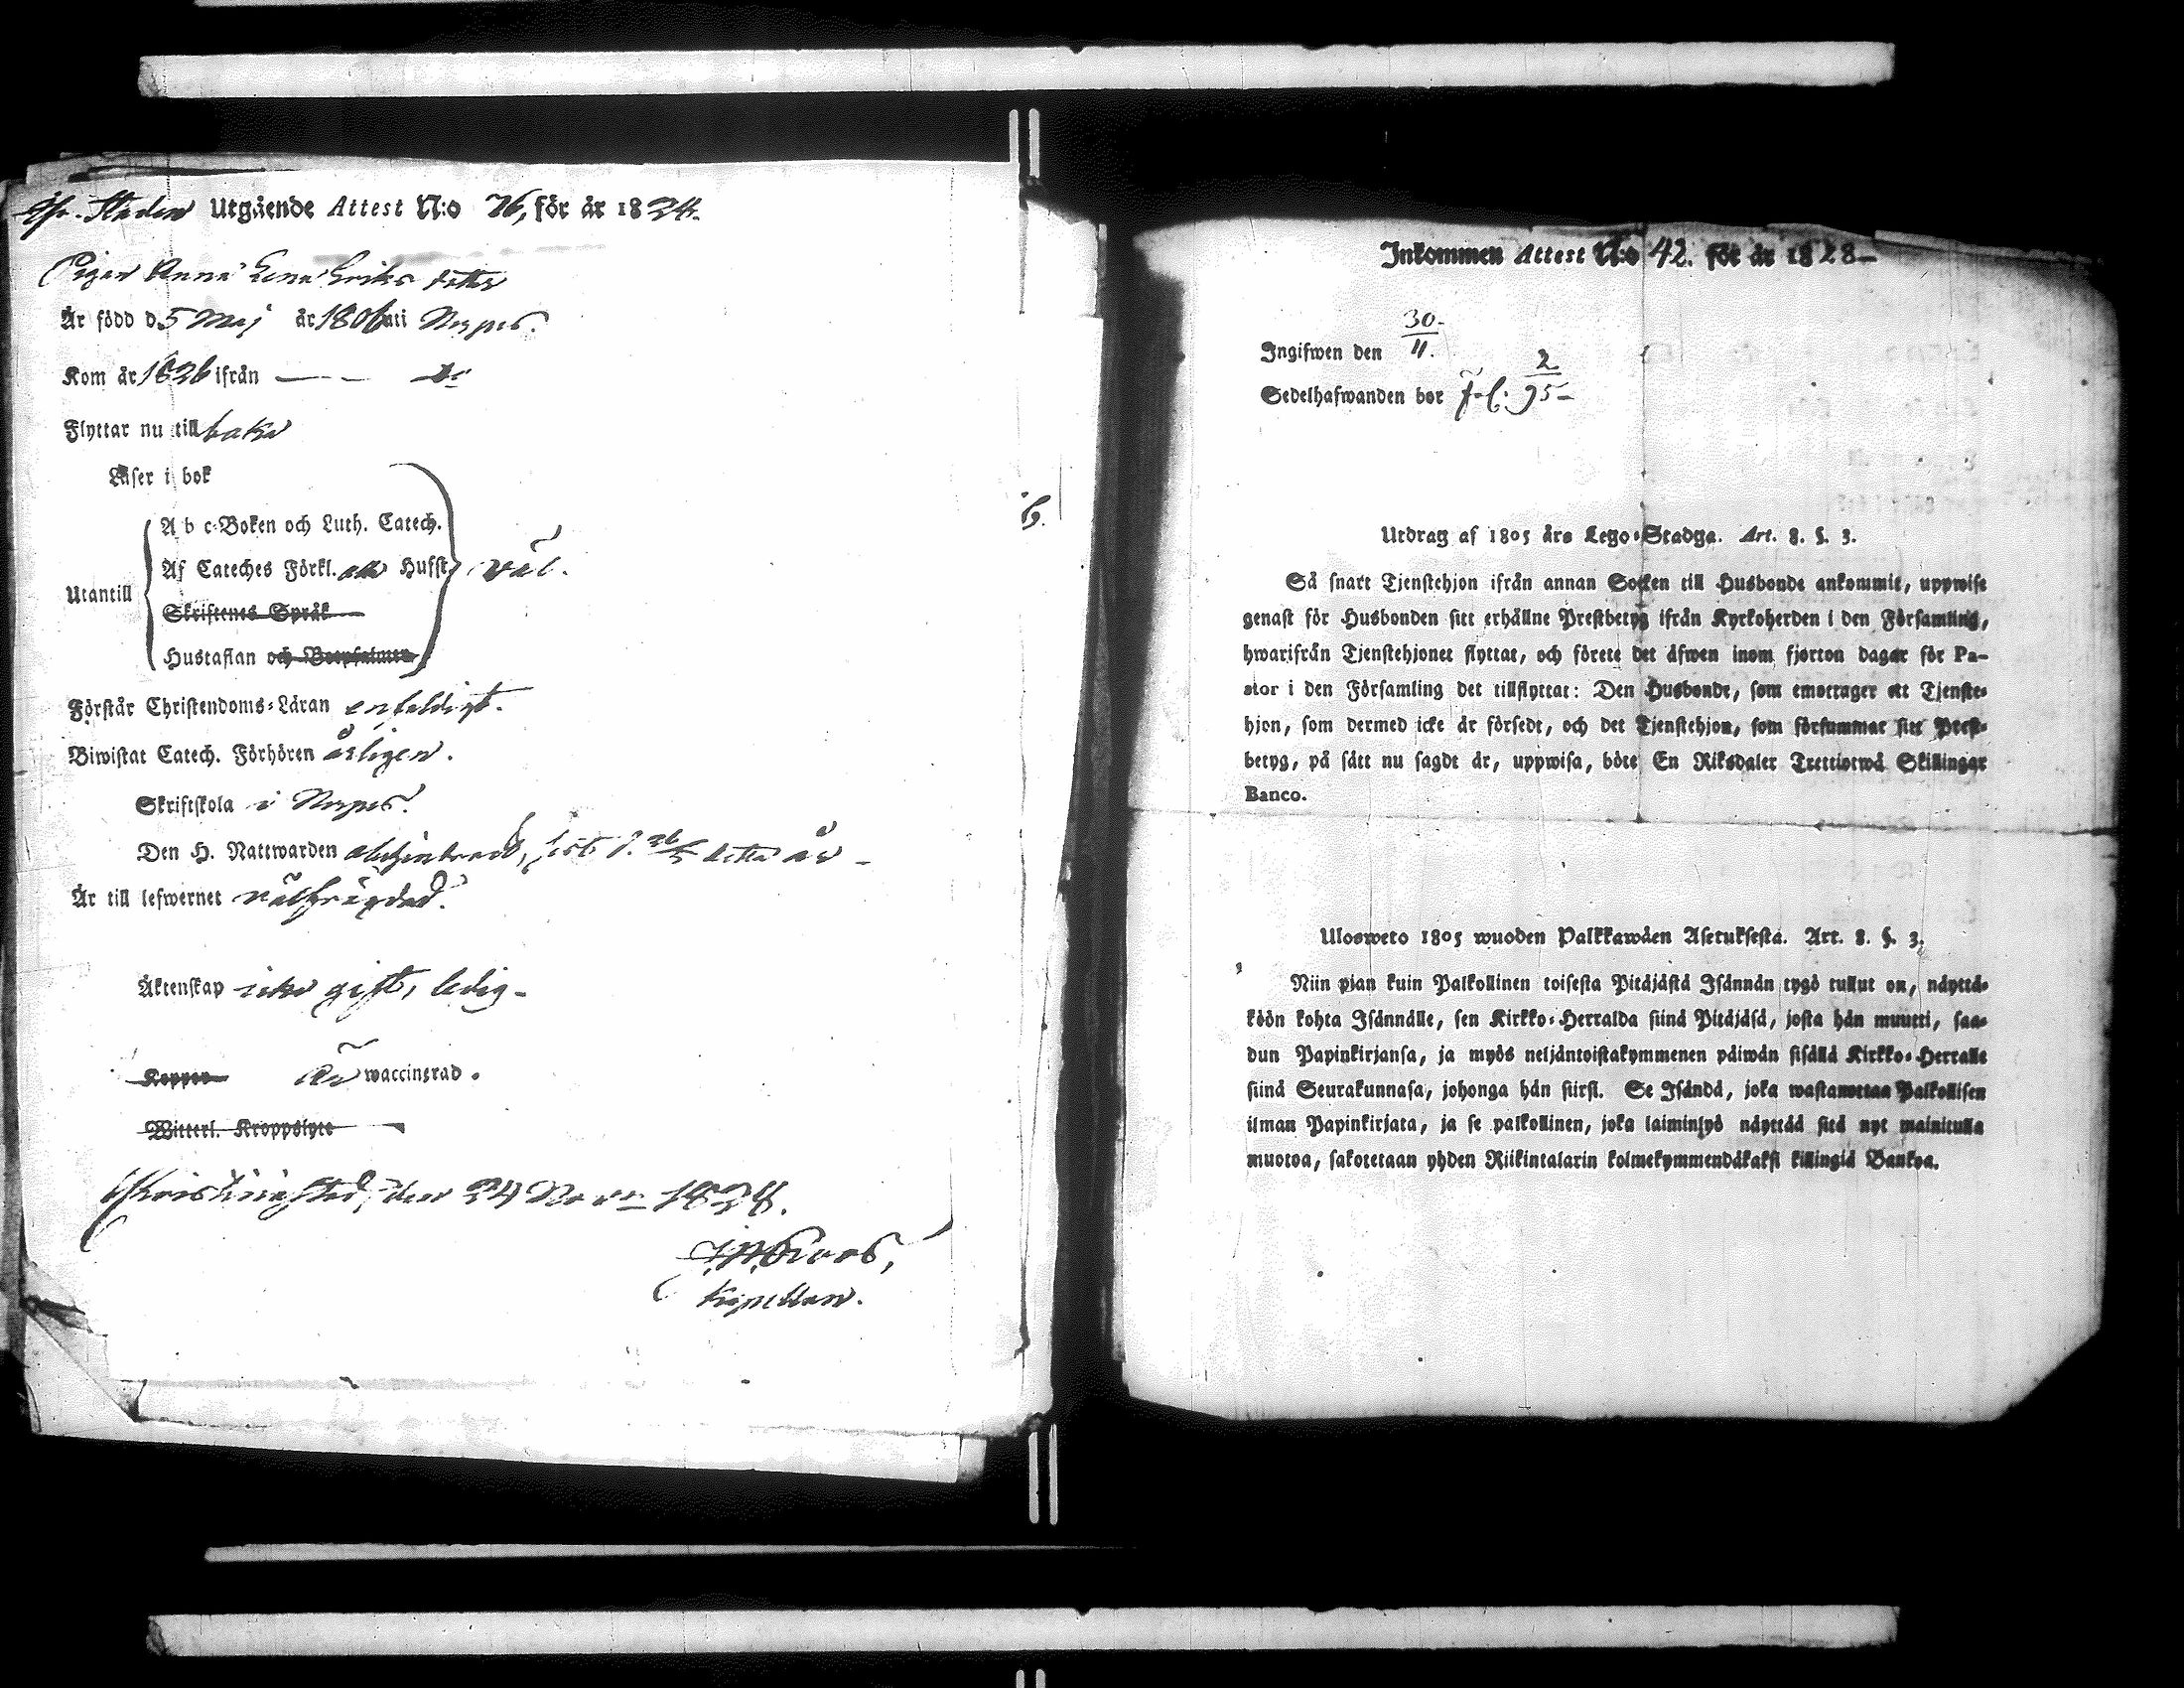 Fr. Staden Utgående Attest N:o 76, för år 1828.
Pigan Anna Lena Eriks dotter
Är född d. 5 Maj år 1806 uti Nerpes.
Kom år 1826 ifrån — — do
Flyttar nu till baka
Läser i bok
A b c-Boken och Luth. Catech.
Af Cateches Förkl. alla Hufst. väl.
Utantill
Skriftenes Språk
Hustaflan och Botpsalmer
Förstår Christendoms-Läran enfaldigt.
Biwistat Catech. Förhören årligen.
Skriftskola i Nerpes.
Den H. Nattwarden sist d. detta år
Är till lefwernet välfrägdad.
Äktenskap icke gift, ledig
Koppor Är waccinerad.
Witterl. Kroppslyte
Christinestad, den 24 Nov. 1828.
Kapellan.
Inkommen Attest N:o 42. för år 1828
Ingifwen den 30/11.
Sedelhafwanden bor 2/95
Utdrag af 1805 års Lego-Stadga. Art. 8. §. 3.
Så snart Tjenstehjon ifrån annan Socken till Husbonde ankommit, uppwise
genast för Husbonden sitt erhållne Prestbetyg ifrån Kyrkoherden i den Församling,
hwarifrån Tjenstehjonet flyttat, och förete det äfwen inom fjorton dagar för Pa-
stor i den Församling det tillflyttat: Den Husbonde, som emottager ett Tjenste-
hjon, som dermed icke är försedt, och det Tjenstehjon, som försummar sitt Prest-
betyg, på sätt nu sagdt är, uppwisa, böte En Riksdaler Trettiotwå Skillingar
Banco.
Ulosweto 1805 wuoden Palkkawäen Asetuksesta. Art. 8. §. 3.
Niin pian kuin Palkollinen toisesta Pitäjästä Isännän tygö tullut on, näyttä-
köön kohta Isännälle, sen Kirkko-Herralda siinä Pitäjäsä, josta hän muutti, saa-
dun Papinkirjansa, ja myös neljäntoistakymmenen päiwän sisällä Kirkko-Herralle
siinä Seurakunnasa, johonga hän siirsi. Se Isändä, joka wastanottaa Palkollisen
ilman Papinkirjata, ja se palkollinen, joka laiminlyö näyttää sitä nyt mainitulla
muotoa, sakotetaan yhden Riikintalarin kolmekymmendäkaksi killingiä Bankoa.